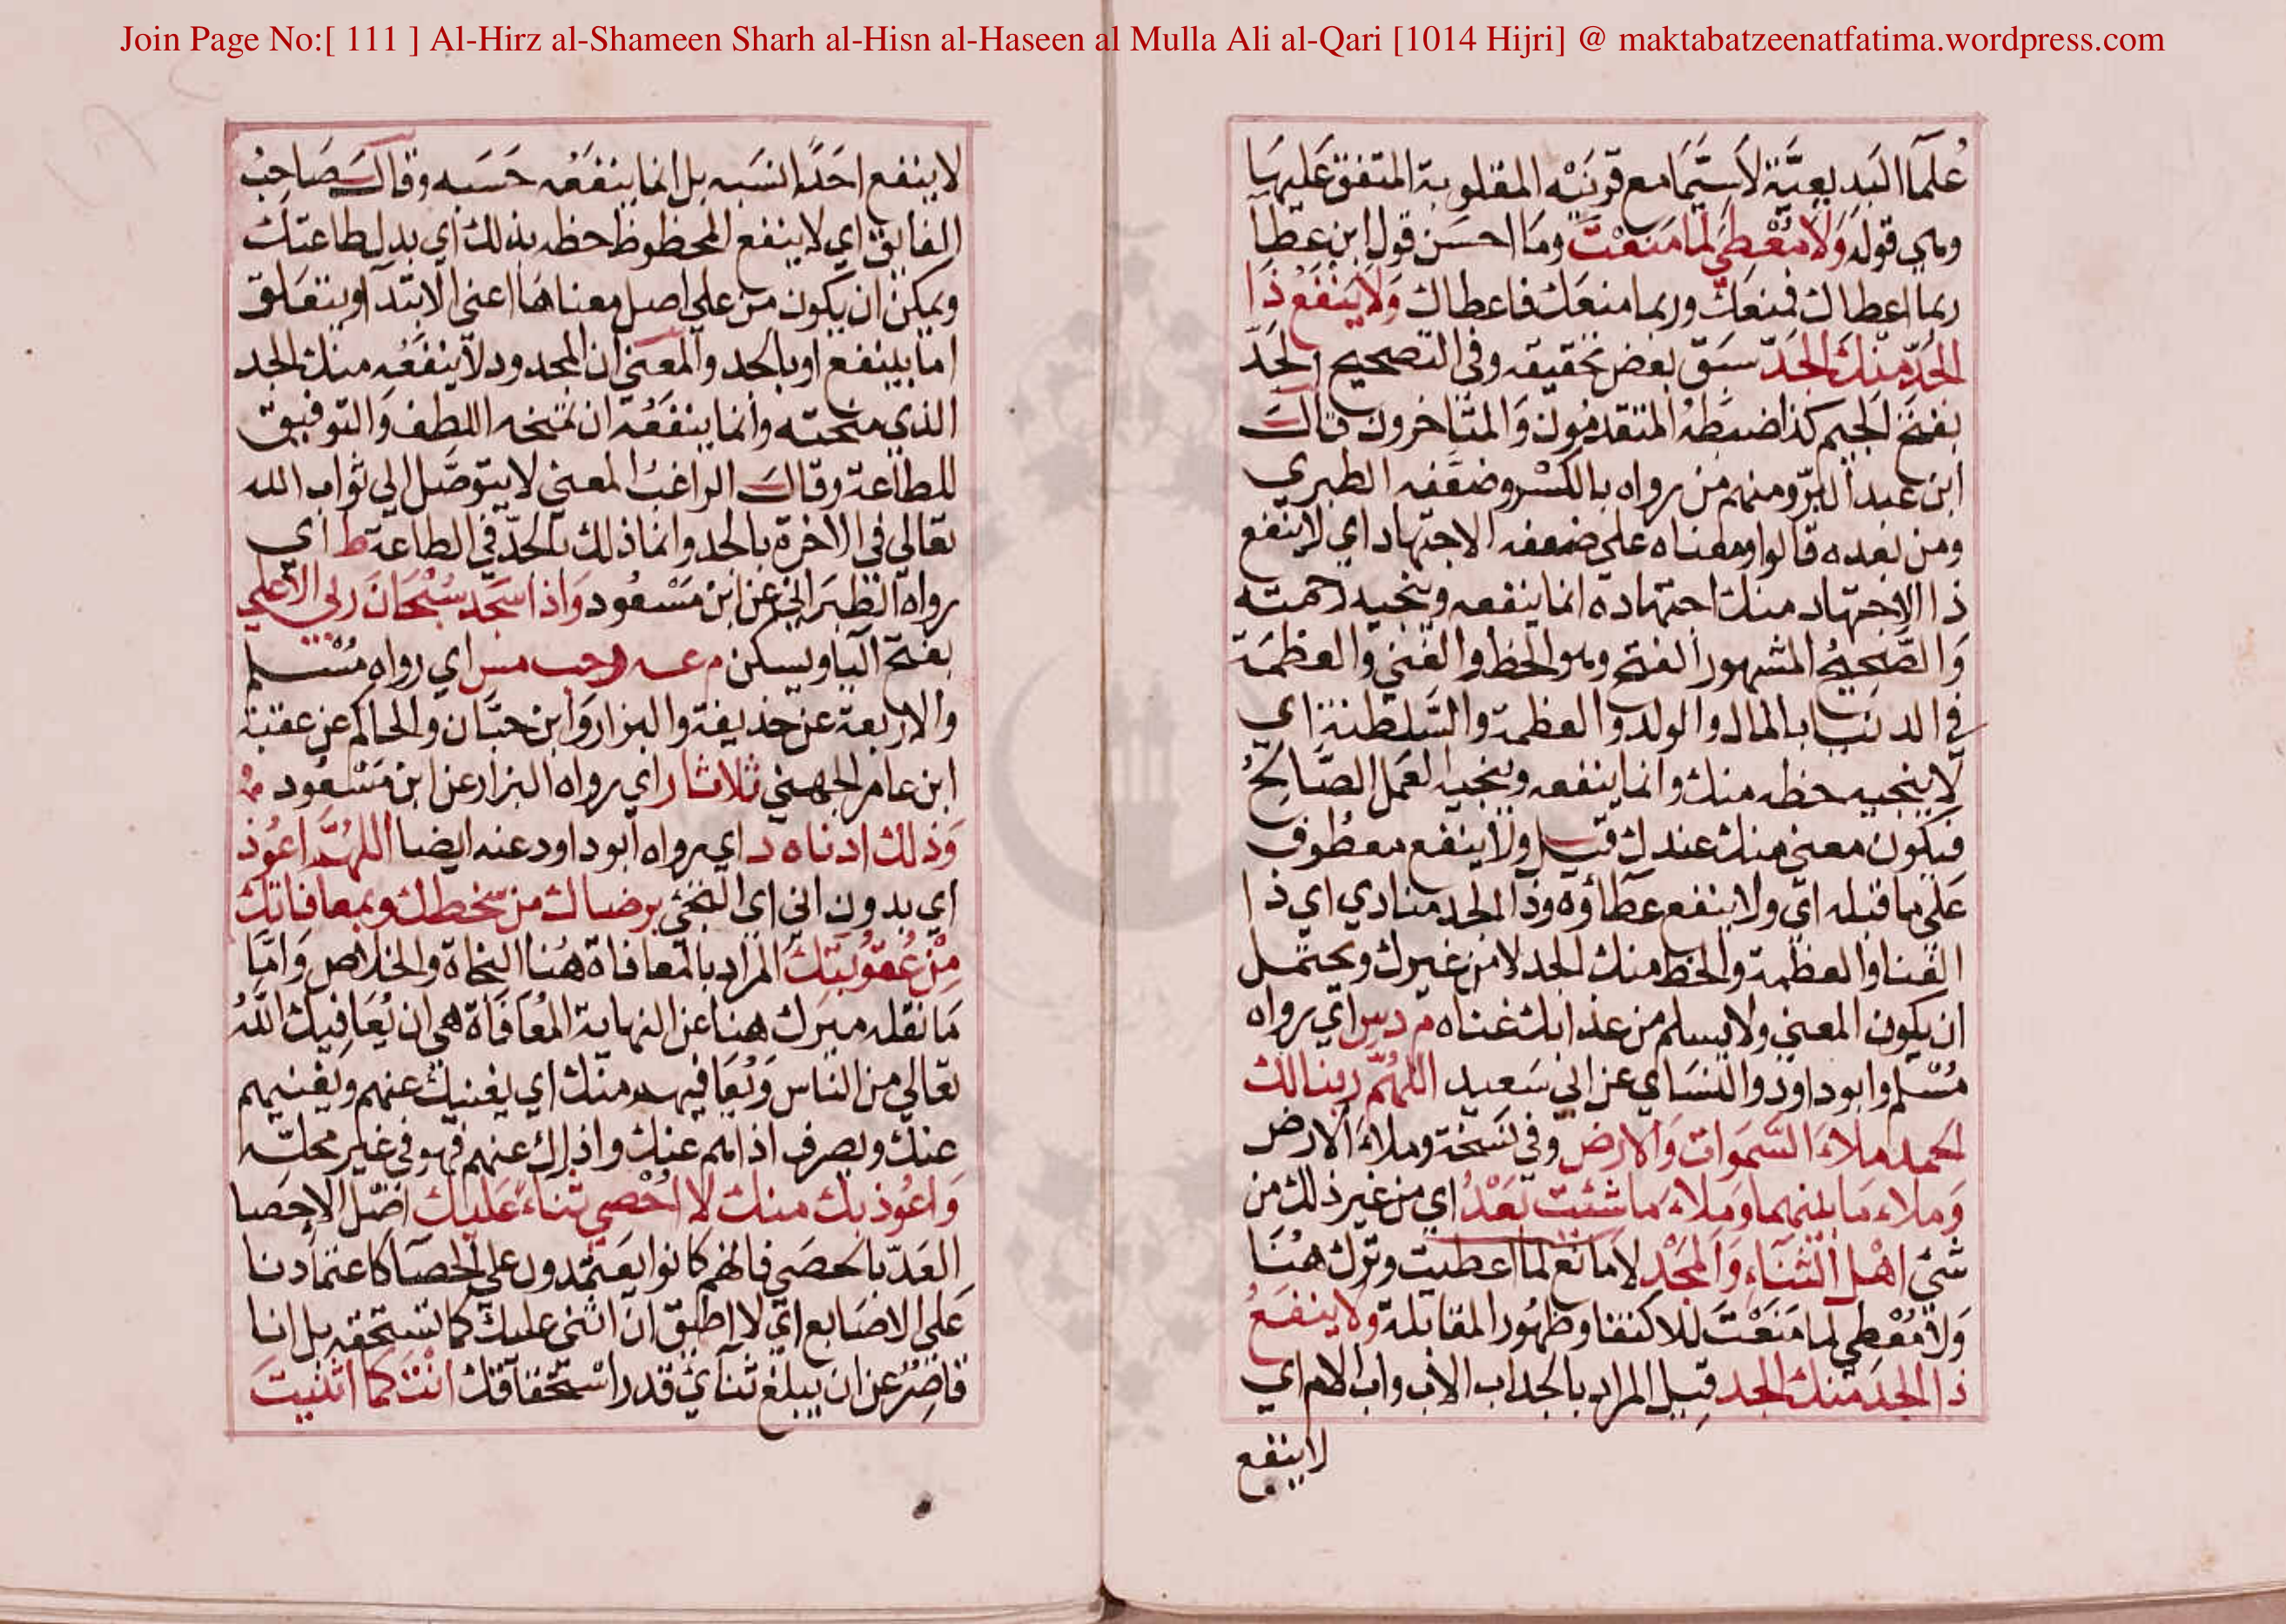 Join Page No:[ 111 ] Al-Hirz al-Shameen Sharh al-Hisn al-Haseen al Mulla Ali al-Qari [1014 Hijri] @ maktabatzeenatfatima.wordpress.com
علمآ البديعيّة لاسيّما مع قرينته المقلوبة المتفق عليها
وهي قوله وَلَا مُعْطِيَ لما مَنَعْتَ وما احسن قول ابن عطا
ربما اعطاك فمنعك وربما منعك فاعطاك وَلَا يَنْفَعُ ذَا
الجَدِّ مِنْكَ الجَدّ سبق بعض تحقيقه وفي التصحيح الجَدّ
بفتح الجيم كذا ضبطه المتقدمون والمتاخرون قال
ابن عبد البرّ ومنهم من رواه بالكسر وضعّفه الطبري
ومن بعده قالوا ومعناه على ضعفه الاجتهاد اي لا ينفع
ذا الاجتهاد منك اجتهاده انما ينفعه وينجيه رحمته
والصّحيحُ المشهور الفتح وهو الحظ والغنى والعظمة
في الدنيا بالمال والولد والعظمة والسّلطنة اي
لا ينجيه حظه منك وانما ينفعه وينجيه العمل الصّالحُ
فيكون معنى منك عندك قيل ولا ينفع معطوف
على ما قبله اي ولا ينفع عطاؤه وذا الجد منادي اي ذا
الغنا والعظمة والحظ منك الجد لا من غيرك ويحتمل
ان يكون المعنى ولا يسلم من عذابك غناه م د س اي رواه
مُسْلم وابو داود والنساي عن ابي سعيد اللهُمّ ربنا لك
الحمد ملاء السَّموات وَالارض وفي نسخة وملاء الارض
وَملاء مَا بينهما وَملاء مَا شئت بَعْدُ اي من غير ذلك من
شئ اهْل الثنآءِ وَالمَجْد لا مانع لما اعطيت وترك هُنَا
وَلَا مُعْطِي لِما مَنَعْتَ للاكتفا وظهُور المقابلة ولا ينفَعُ
ذا الجَد منك الجد قيل المراد بالجد اب الاب واب الام اي
لا ينفع
لا ينفع احدًا نسَبه بل انما ينفَعُه حَسَبه وقال صَاحبُ
الفايق اي لا ينفع المحظوظ حظه بذلك اي بدل طاعتك
ويمكن ان يكون من على اصل معناها اعني الابتدآ ويتعلق
امّا بينفع او بالجد والمعنى ان المجدود لا ينفعُه منك الجد
الذي منحته وانما ينفَعُه ان تمنحه اللطف والتوفيق
للطاعة وقال الراغبُ المعنى لا يتوصّل الي ثواب الله
تعالى في الاخرة بالجد وانما ذلك بالجدّ في الطاعة ط اي
رواه الطبراني عن ابن مسْعُود وَاذا سَجد سُبْحَانَ ربي الاعلى
بفتح اليا ويسكن م عه ر حب مس اي رواه مُسْلم
والاربعة عن حذيفة والبزار وَابن حبّان والحاكم عن عقبة
ابن عامر الجهني ثلاثا ر اي رواه البزار عن ابن مَسْعُود
وَذلك ادناه د اي رواه ابو داود عنه ايضا اللهُمَّ اعُوذُ
اي بدون اني برضاك من سخطك وبمعافاتك
مِنْ عُقُوبَتِكَ المراد بالمعافاة هُنا النجاة والخلاص وَامَّا
مَا نقله ميرك هنا عن النهاية المُعَافَاة هي ان يُعَافِيكَ اللّهُ
تعالى من الناس وَيُعَافيهم منك اي يغنيك عنهم ويغنيهم
عنك ويصرف اذاهم عنك واذاك عنهم فهو في غير محلّه
وَاعُوذ بك منك لا احْصي ثناءً عَليك اصْل الاحصا
العَدّ بالحصَى فانهم كانوا يَعتمدون على الحصآ كاعتمادنا
عَلى الاصَابع اي لا اطيق ان اثنى عليك كما تستحقه بل انا
قاصِرٌ عن ان يبلغ ثنآئي قدر اسْتحقاقك انْتَ كما اثنيتَ